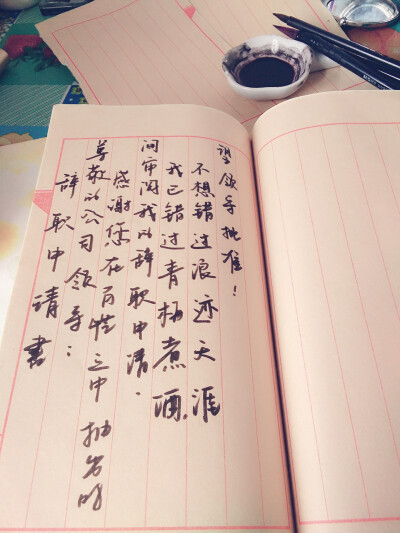 辞职申请书
尊敬的公司领导:
感谢您在百忙之中抽出时
间审阅我的辞职申请.
我已错过青梅煮酒,
不想错过浪迹天涯
望领导批准!